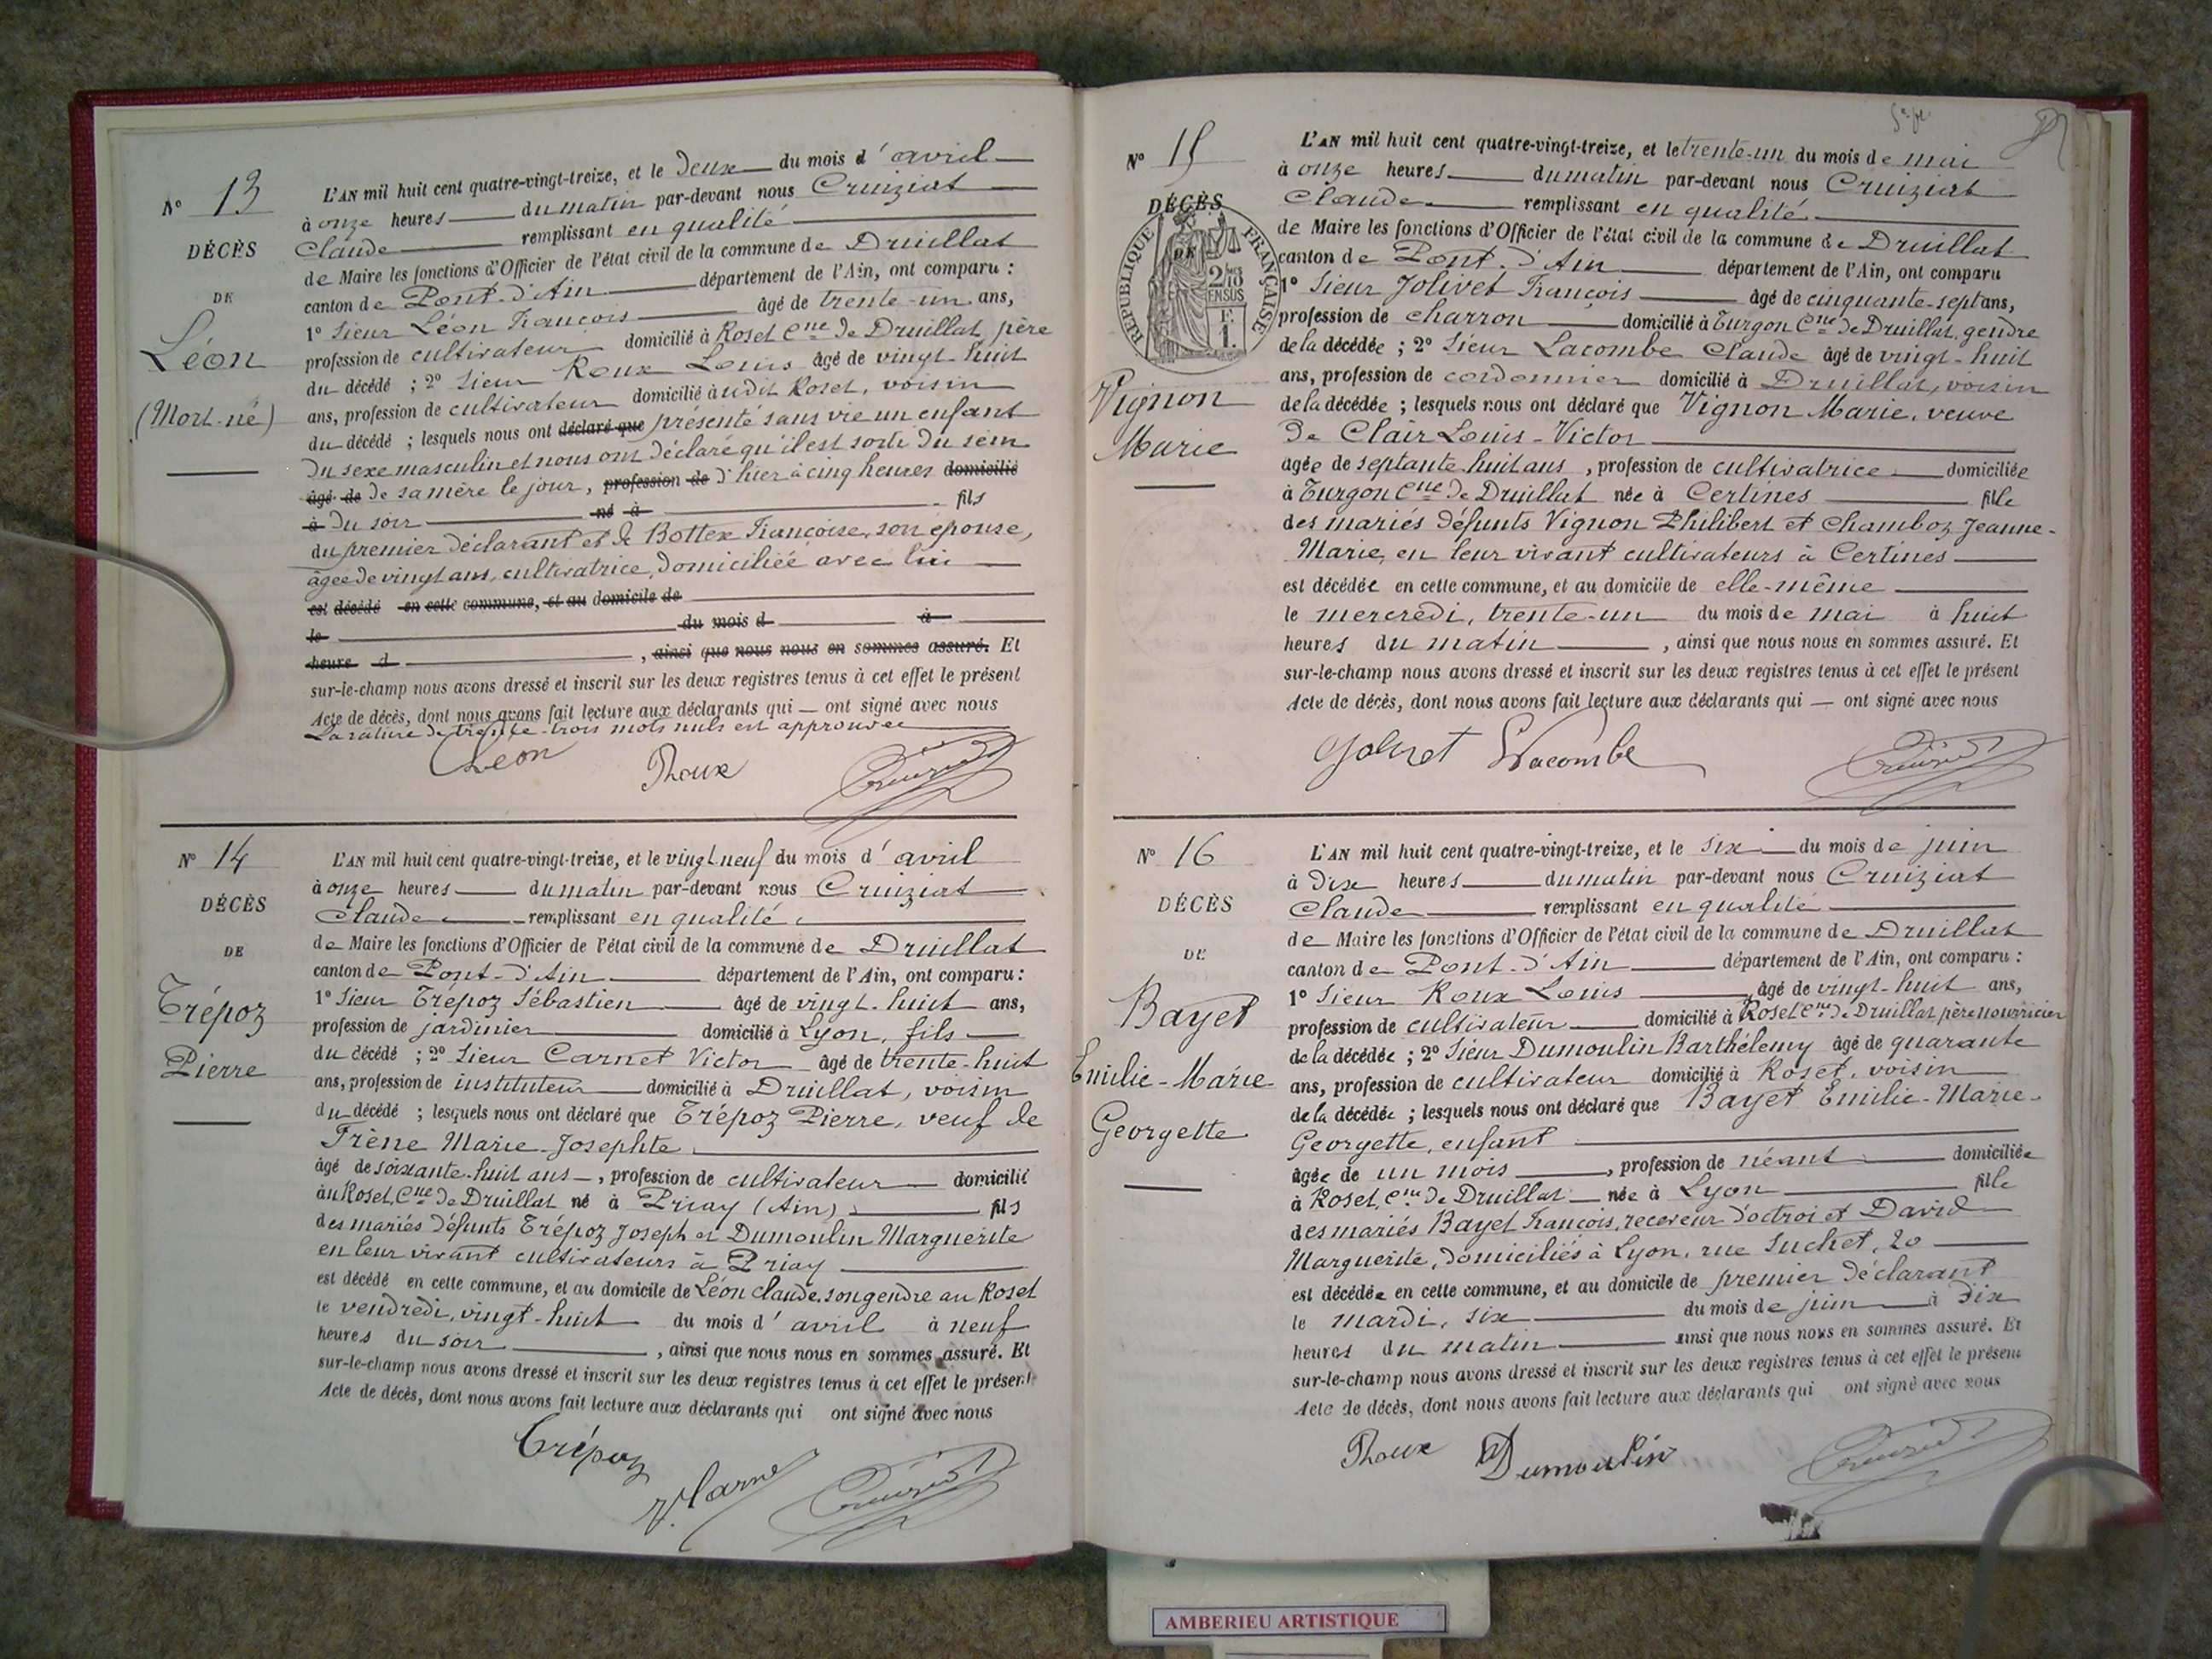 N° 13
DÉCÈS
DE
Léon
(Mort-né)
L'AN mil huit cent quatre-vingt-treize, et le deux du mois d'avril
à onze heures du matin par-devant nous Cruiziat
Claude remplissant en qualité
de Maire les fonctions d'Officier de l'état civil de la commune de Druillat
canton de Pont-d'Ain département de l'Ain, ont comparu :
1° Sieur Léon François âgé de trente-un ans,
profession de cultivateur domicilié à Roset Cne de Druillat, père
du décédé ; 2° Sieur Roux Louis âgé de vingt-huit
ans, profession de cultivateur domicilié àudit Roset, voisin
du décédé ; lesquels nous ont déclaré que présenté sans vie un enfant
du sexe masculin et nous ont déclaré qu'il est sorti du sein
âgé de de sa mère le jour, profession de d'hier à cinq heures domicilié
à du soir né à fils
du premier déclarant et de Bottex Françoise, son épouse,
âgée de vingt ans, cultivatrice, domiciliée avec lui
est décédé en cette commune, et au domicile de
le du mois d à
heure d , ainsi que nous nous en sommes assuré. Et
sur-le-champ nous avons dressé et inscrit sur les deux registres tenus à cet effet le présent
Acte de décès, dont nous avons fait lecture aux déclarants qui — ont signé avec nous
La rature de trente-trois mots nuls est approuvée
Léon Roux Cruiziat
N° 14
DÉCÈS
DE
Trépoz
Pierre
L'AN mil huit cent quatre-vingt-treize, et le vingt neuf du mois d'avril
à onze heures du matin par-devant nous Cruiziat
Claude remplissant en qualité
de Maire les fonctions d'Officier de l'état civil de la commune de Druillat
canton de Pont-d'Ain département de l'Ain, ont comparu :
1° Sieur Trepoz Sébastien âgé de vingt-huit ans,
profession de jardinier domicilié à Lyon, fils
du décédé ; 2° Sieur Carnet Victor âgé de trente-huit
ans, profession de instituteur domicilié à Druillat, voisin
du décédé ; lesquels nous ont déclaré que Trépoz Pierre, veuf de
Frène Marie-Josephte
âgé de soixante-huit ans, profession de cultivateur domicilié
au Roset, Cne de Druillat né à Priay (Ain) fils
des mariés défunts Trépoz Joseph et Dumoulin Marguerite
en leur vivant cultivateurs à Priay
est décédé en cette commune, et au domicile de Léon Claude, son gendre au Roset
le vendredi, vingt-huit du mois d'avril à neuf
heures du soir , ainsi que nous nous en sommes assuré. Et
sur-le-champ nous avons dressé et inscrit sur les deux registres tenus à cet effet le présent
Acte de décès, dont nous avons fait lecture aux déclarants qui ont signé avec nous
Trépoz V. Carnet Cruiziat
N° 15
DÉCÈS
DE
RÉPUBLIQUE FRANÇAISE
2/10
EN SUS
F.
1.
Vignon
Marie
L'AN mil huit cent quatre-vingt-treize, et le trente-un du mois de mai
à onze heures du matin par-devant nous Cruiziat
Claude remplissant en qualité
de Maire les fonctions d'Officier de l'état civil de la commune de Druillat
canton de Pont-d'Ain département de l'Ain, ont comparu
1° Sieur Jolivet François âgé de cinquante-sept ans,
profession de charron domicilié à Turgon Cne de Druillat, gendre
de la décédée ; 2° Sieur Lacombe Claude âgé de vingt-huit
ans, profession de cordonnier domicilié à Druillat, voisin
de la décédée ; lesquels nous ont déclaré que Vignon Marie, veuve
de Clair Louis-Victor
agée de septante-huit ans , profession de cultivatrice domiciliée
à Turgon Cne de Druillat née à Certines fille
des mariés défunts Vignon Philibert et Chamboz Jeanne-
Marie, en leur vivant cultivateurs à Certines
est décédée en cette commune, et au domicile de elle-même
le mercredi, trente-un du mois de mai à huit
heures du matin , ainsi que nous nous en sommes assuré. Et
sur-le-champ nous avons dressé et inscrit sur les deux registres tenus à cet effet le présent
Acte de décès, dont nous avons fait lecture aux déclarants qui — ont signé avec nous
Jolivet Lacombe Cruiziat
N° 16
DÉCÈS
DE
Bayet
Emilie-Marie
Georgette
L'AN mil huit cent quatre-vingt-treize, et le six du mois de juin
à dix heures du matin par-devant nous Cruiziat
Claude remplissant en qualité
de Maire les fonctions d'Officier de l'état civil de la commune de Druillat
canton de Pont-d'Ain département de l'Ain, ont comparu :
1° Sieur Roux Louis âgé de vingt-huit ans,
profession de cultivateur domicilié à Roset Cne de Druillat père nourricier
de la décédée ; 2° Sieur Dumoulin Barthélemy âgé de quarante
ans, profession de cultivateur domicilié à Roset, voisin
de la décédée ; lesquels nous ont déclaré que Bayet Emilie-Marie-
Georgette, enfant
âgée de un mois , profession de néant domiciliée
à Roset, Cne de Druillat née à Lyon fille
des mariés Bayet François, receveur d'octroi et David
Marguerite, domiciliés à Lyon, rue Suchet, 20
est décédée en cette commune, et au domicile de premier déclarant
le mardi, six du mois de juin à dix
heures du matin ainsi que nous nous en sommes assuré. Et
sur-le-champ nous avons dressé et inscrit sur les deux registres tenus à cet effet le présent
Acte de décès, dont nous avons fait lecture aux déclarants qui ont signé avec nous
Roux Dumoulin Cruiziat
AMBERIEU ARTISTIQUE